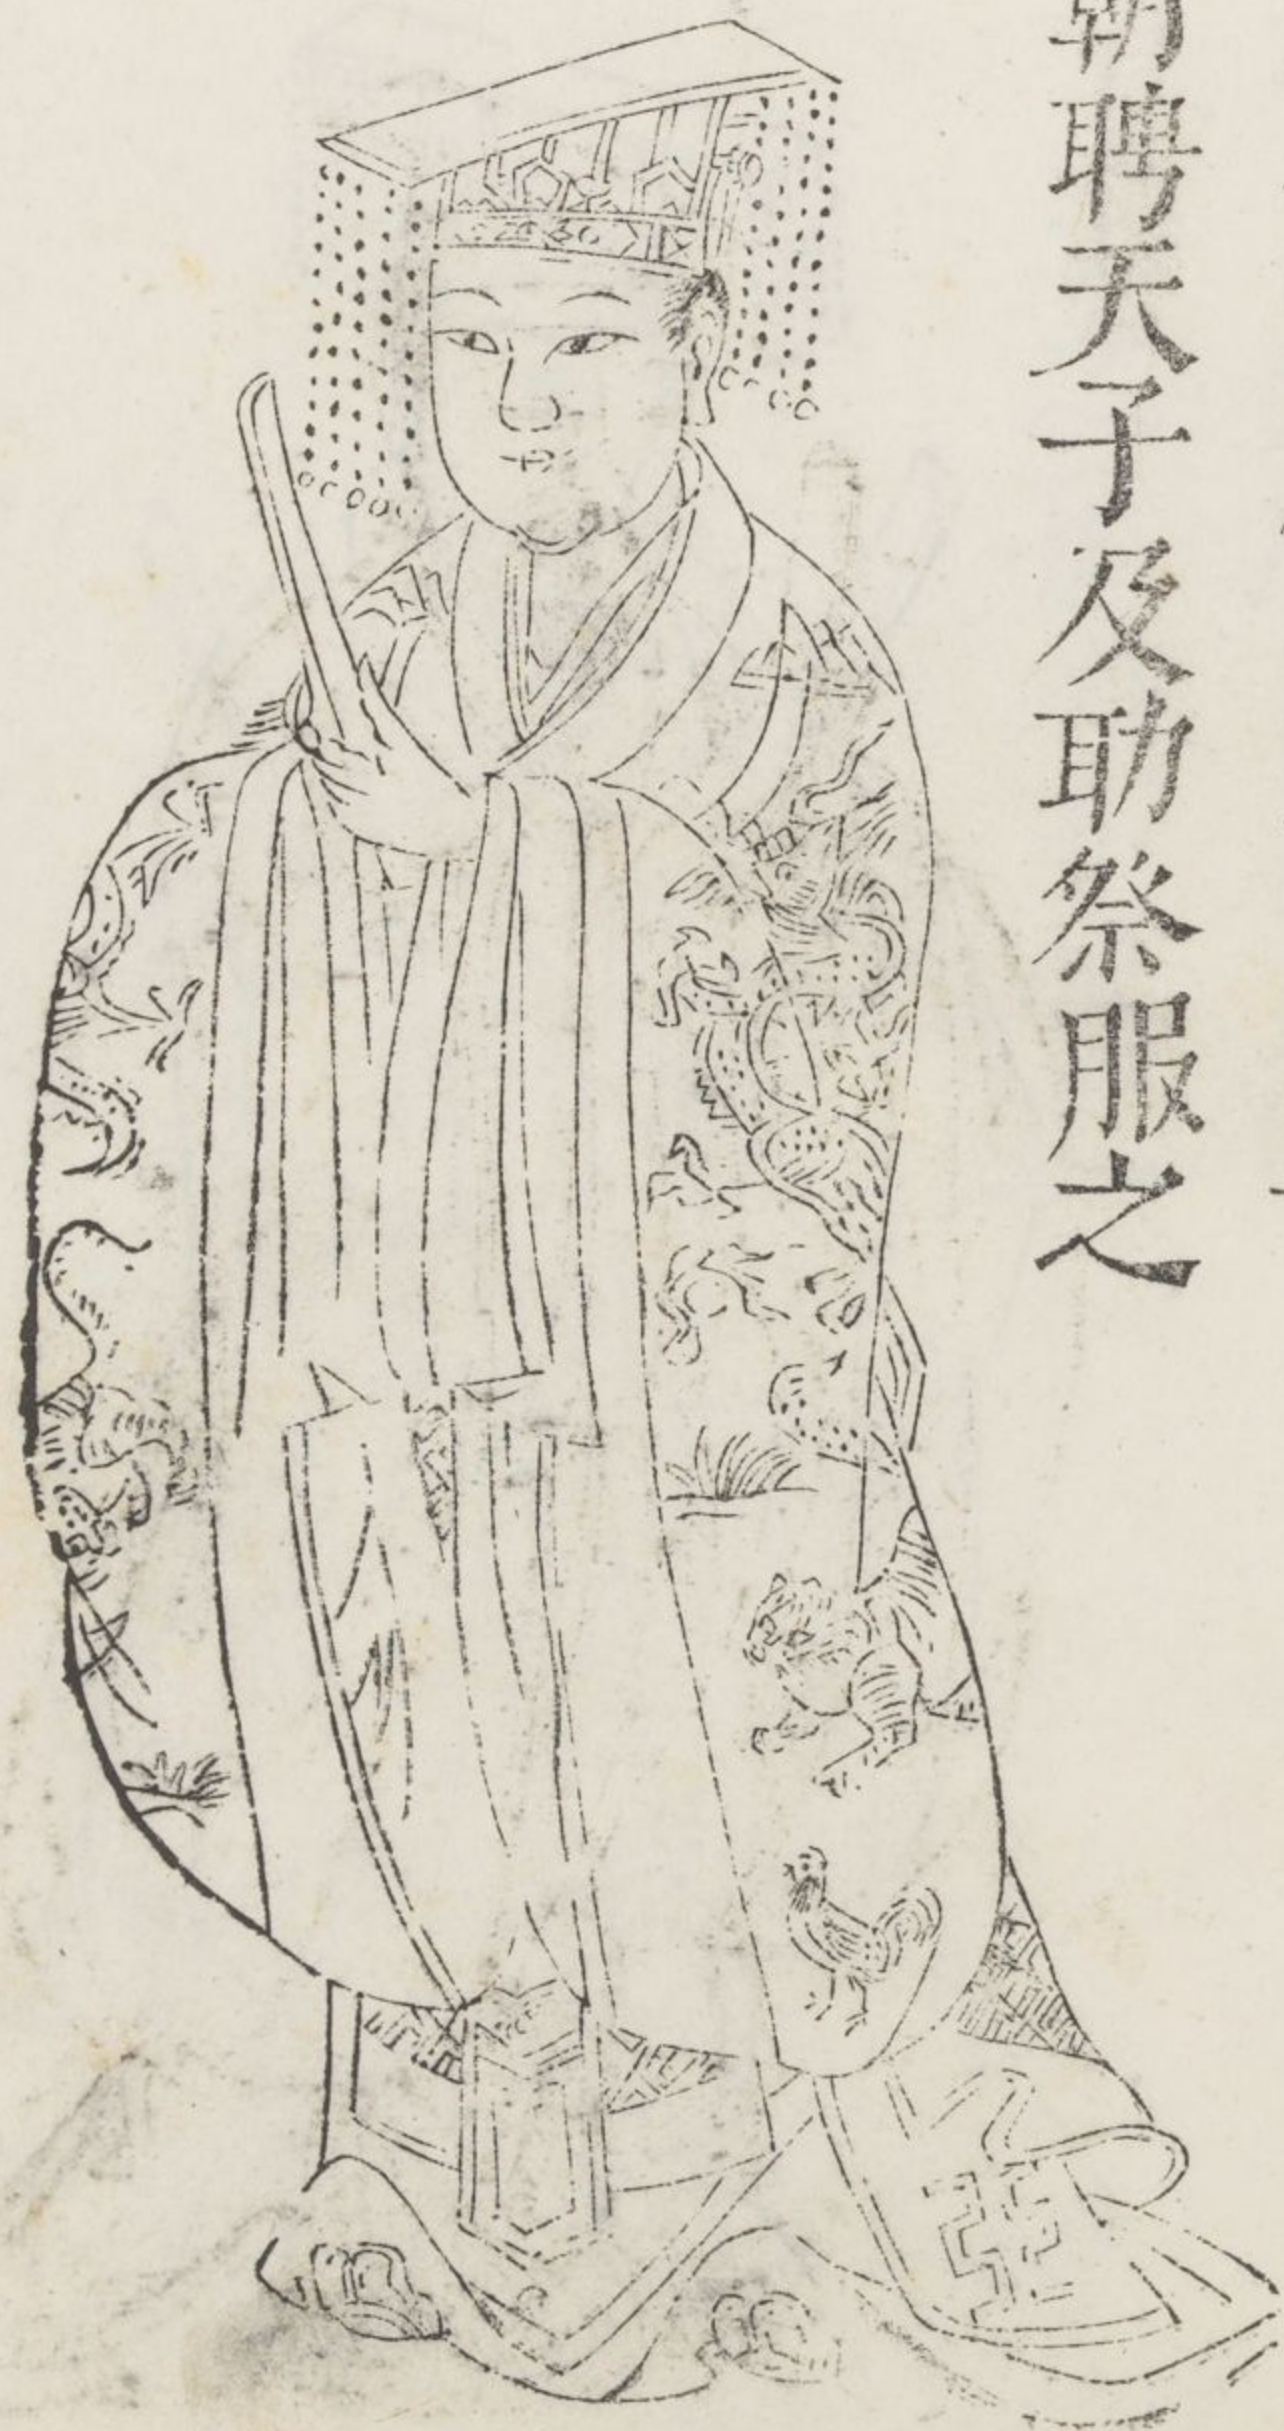 朝聘天子及助祭服之